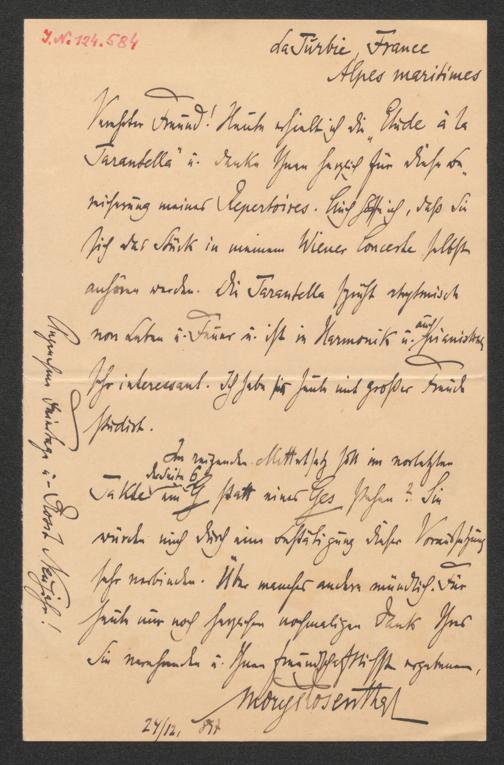 J.N. 124.584
La Turbie, France
Alpes maritimes
Verehrter Freund! Heute erhielt ich die „Etude à la
Tarantella“ u. danke Ihnen herzlich für diese Be-
reicherung meines Repertoires. hoffe ich, daß Sie
sich das Stück in meinem Wiener Concerte selbst
anhören werden. Die Tarantella sprüht rhytmisch
von Leben u. Feuer u. ist in Harmonik u. auch pianistisch
sehr interessant. Ich habe sie heute mit großer Freude
studirt.
Im reizenden Mittelsatz soll im vorletzten
Takte der Seite 6 ein G statt eines Ges stehen? Sie
würden mich durch eine Bestätigung dieser Voraussetzung
sehr verbinden. Über manches andere mündlich. Für
heute nur noch herzlichen nochmaligen Dank Ihres
Sie verehrenden u. Ihnen freundschaftlichst ergebenen,
Moriz Rosenthal
24/12.
Angenehme Feiertage u. Prosit Neujahr!